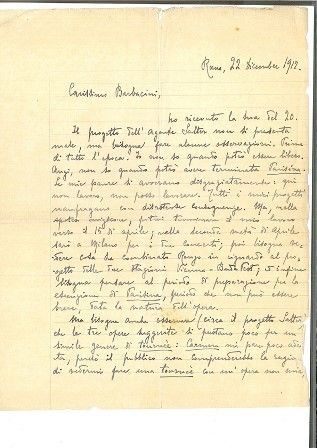 Roma, 22 Dicembre 1912.
Carissimo Barbacini,
ho ricevuto la sua del 20.
Il progetto dell'Agente Salter non si presenta
male, ma bisogna fare alcune osservazioni. Prima
di tutto l'epoca. Io non so quanto potrò esser libero.
Anzi, non so quanto potrò avere terminata Parisina.
Le mie paure si avverano disgraziatamente: qui
non lavoro, non posso lavorare. Tutti i miei progetti
naufragano con disastrose conseguenze. Ma, nella
ipotesi migliore, potrei terminare il mio lavoro
verso il 15 di aprile; nella seconda metà di Aprile
sarò a Milano per i due concerti; poi bisogna ve-
dere cosa ha combinato in riguardo al pro-
getto delle due stagioni Vienna - Budapest; e infine
bisogna pensare al periodo di preparazione per la
esecuzione di Parisina, periodo che non può essere
breve, data la natura dell'opera.
Ma bisogna anche osservare (circa il progetto Salter)
che le tre opere suggerite si prestano poco per un
simile genere di tournée: Carmen mi pare poco adat-
ta, perchè il pubblico non comprenderebbe la ragione
di vedermi fare una tournée con un'opera non mia,